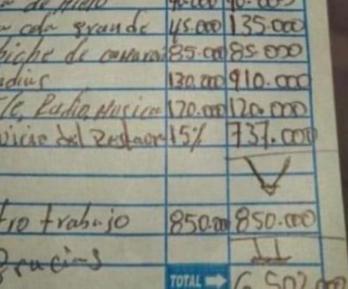 de hielo
cola grande 45.000 135.000
biche de camaron 85.000 85.000
130.000 910.000
Radio Musica 120.000 120.000
vicio del Restaor 15% 737.000
trabajo 850.000 850.000
Gracias
TOTAL 6.502.000